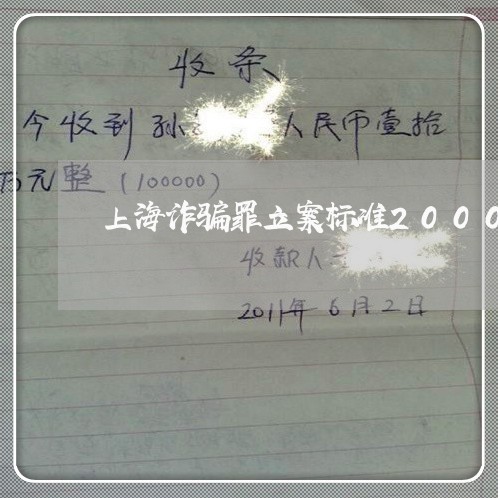 收条
今收到孙 人民币壹拾
万元整(100000)
上海诈骗罪立案标准2000
收款人
2011年6月2日